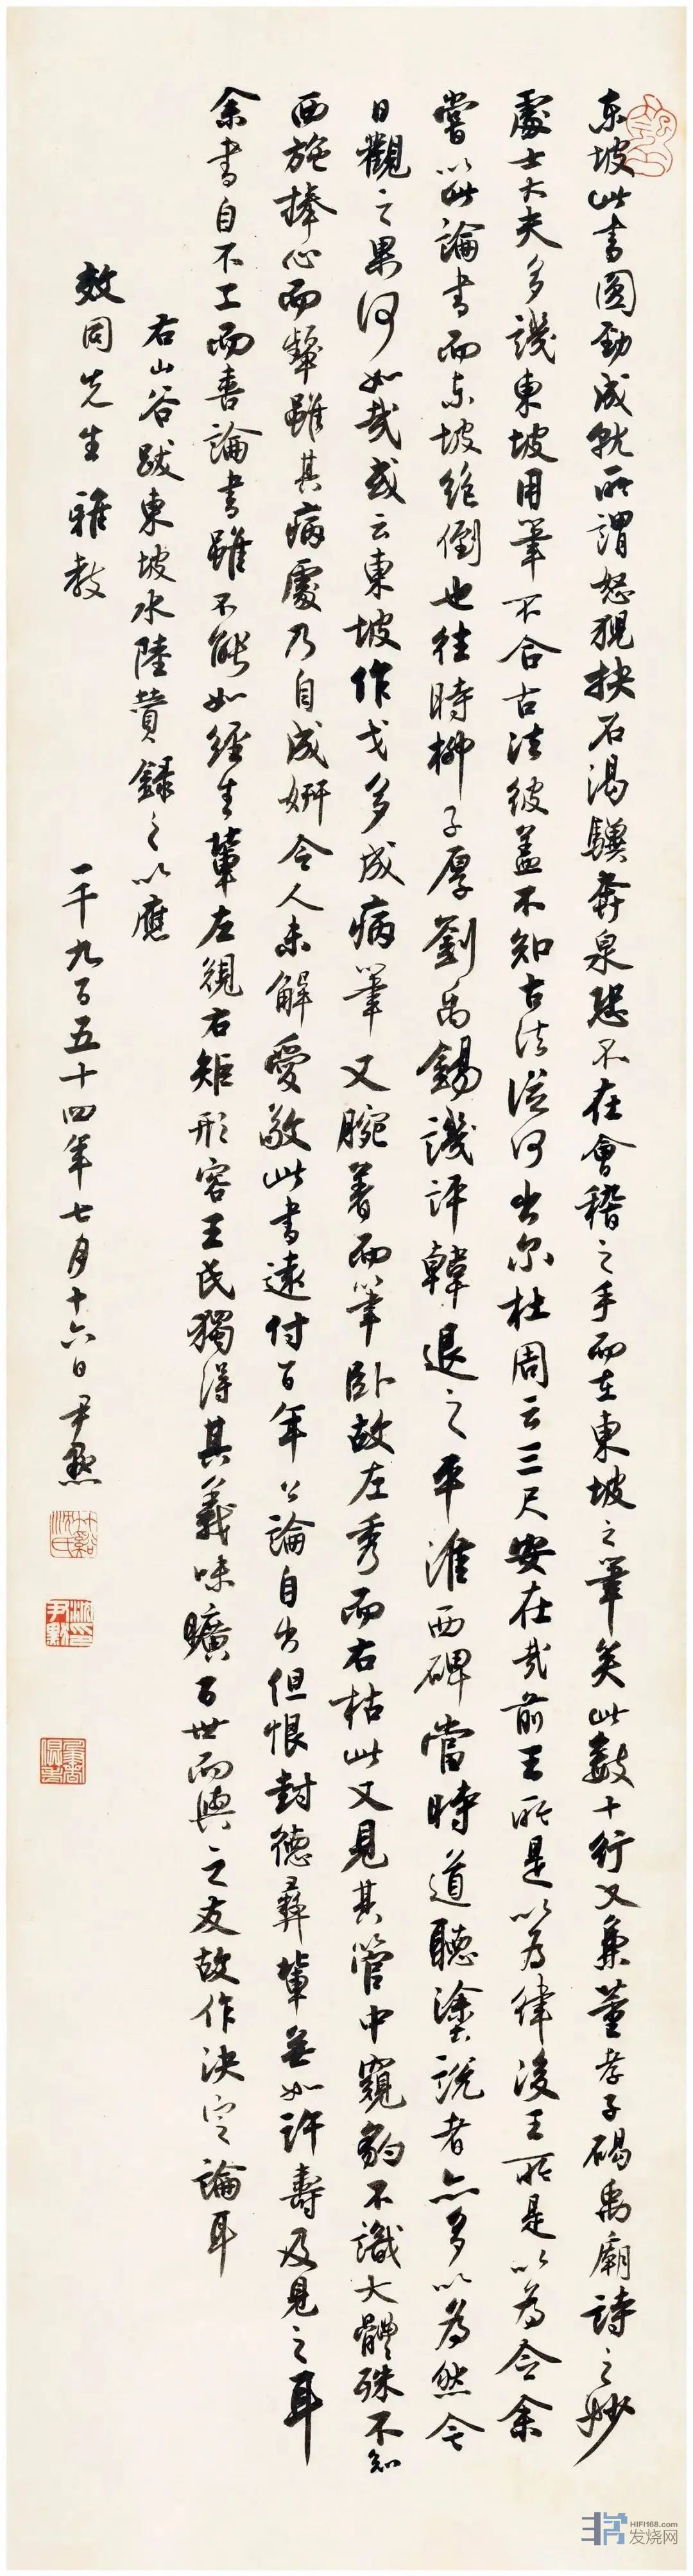 东坡此書圓勁成就所謂怒猊抉石渴驥奔泉恐不在會稽之手而在東坡之筆矣此數十行又兼董孝子碣禹廟詩之妙
處士大夫多譏東坡用筆不合古法彼蓋不知古法從何出尔杜周云三尺安在哉前王所是以為律後王所是以為令余
嘗以此論書而东坡絶倒也往時柳子厚劉禹錫譏評韓退之平淮西碑當時道聽塗説者亦多以為然今
日觀之果何如哉或云東坡作戈多成病筆又腕著而筆卧故左秀而右枯此又見其管中窺豹不識大體殊不知
西施捧心而顰雖其病處乃自成妍今人未解愛敬此書遠付百年公論自出但恨封德彝輩無如許壽及見之耳
余書自不工而喜論書雖不能如經生輩左規右矩形容王氏獨得其義味曠百世而與之友故作決定論耳
右山谷跋東坡水陸贊録之以應
效同先生雅教
一千九百五十四年七月十六日尹默
竹谿沈氏
沈尹默
HIFI168.com
发烧网